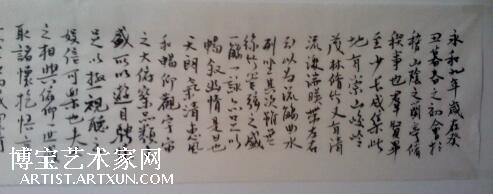 永和九年歲在癸
丑暮春之初會于
稽山陰之蘭亭脩
稧事也羣賢畢
至少長咸集此
地有崇山峻領
茂林脩竹又有清
流激湍暎帶左右
引以為流觴曲水
列坐其次雖無
絲竹管弦之盛
一觴一詠亦足以
暢叙幽情是日也
天朗氣清惠風
和暢仰觀宇宙
之大俯察品類
盛所以遊目騁
足以極視聽之
娛信可樂也夫
之相與俯仰一世
取諸懷抱悟言
博宝艺术家网
ARTIST.ARTXUN.COM